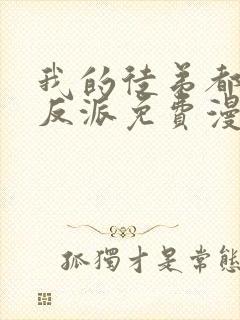 我的徒弟都
反派免費漫
孤獨才是常態